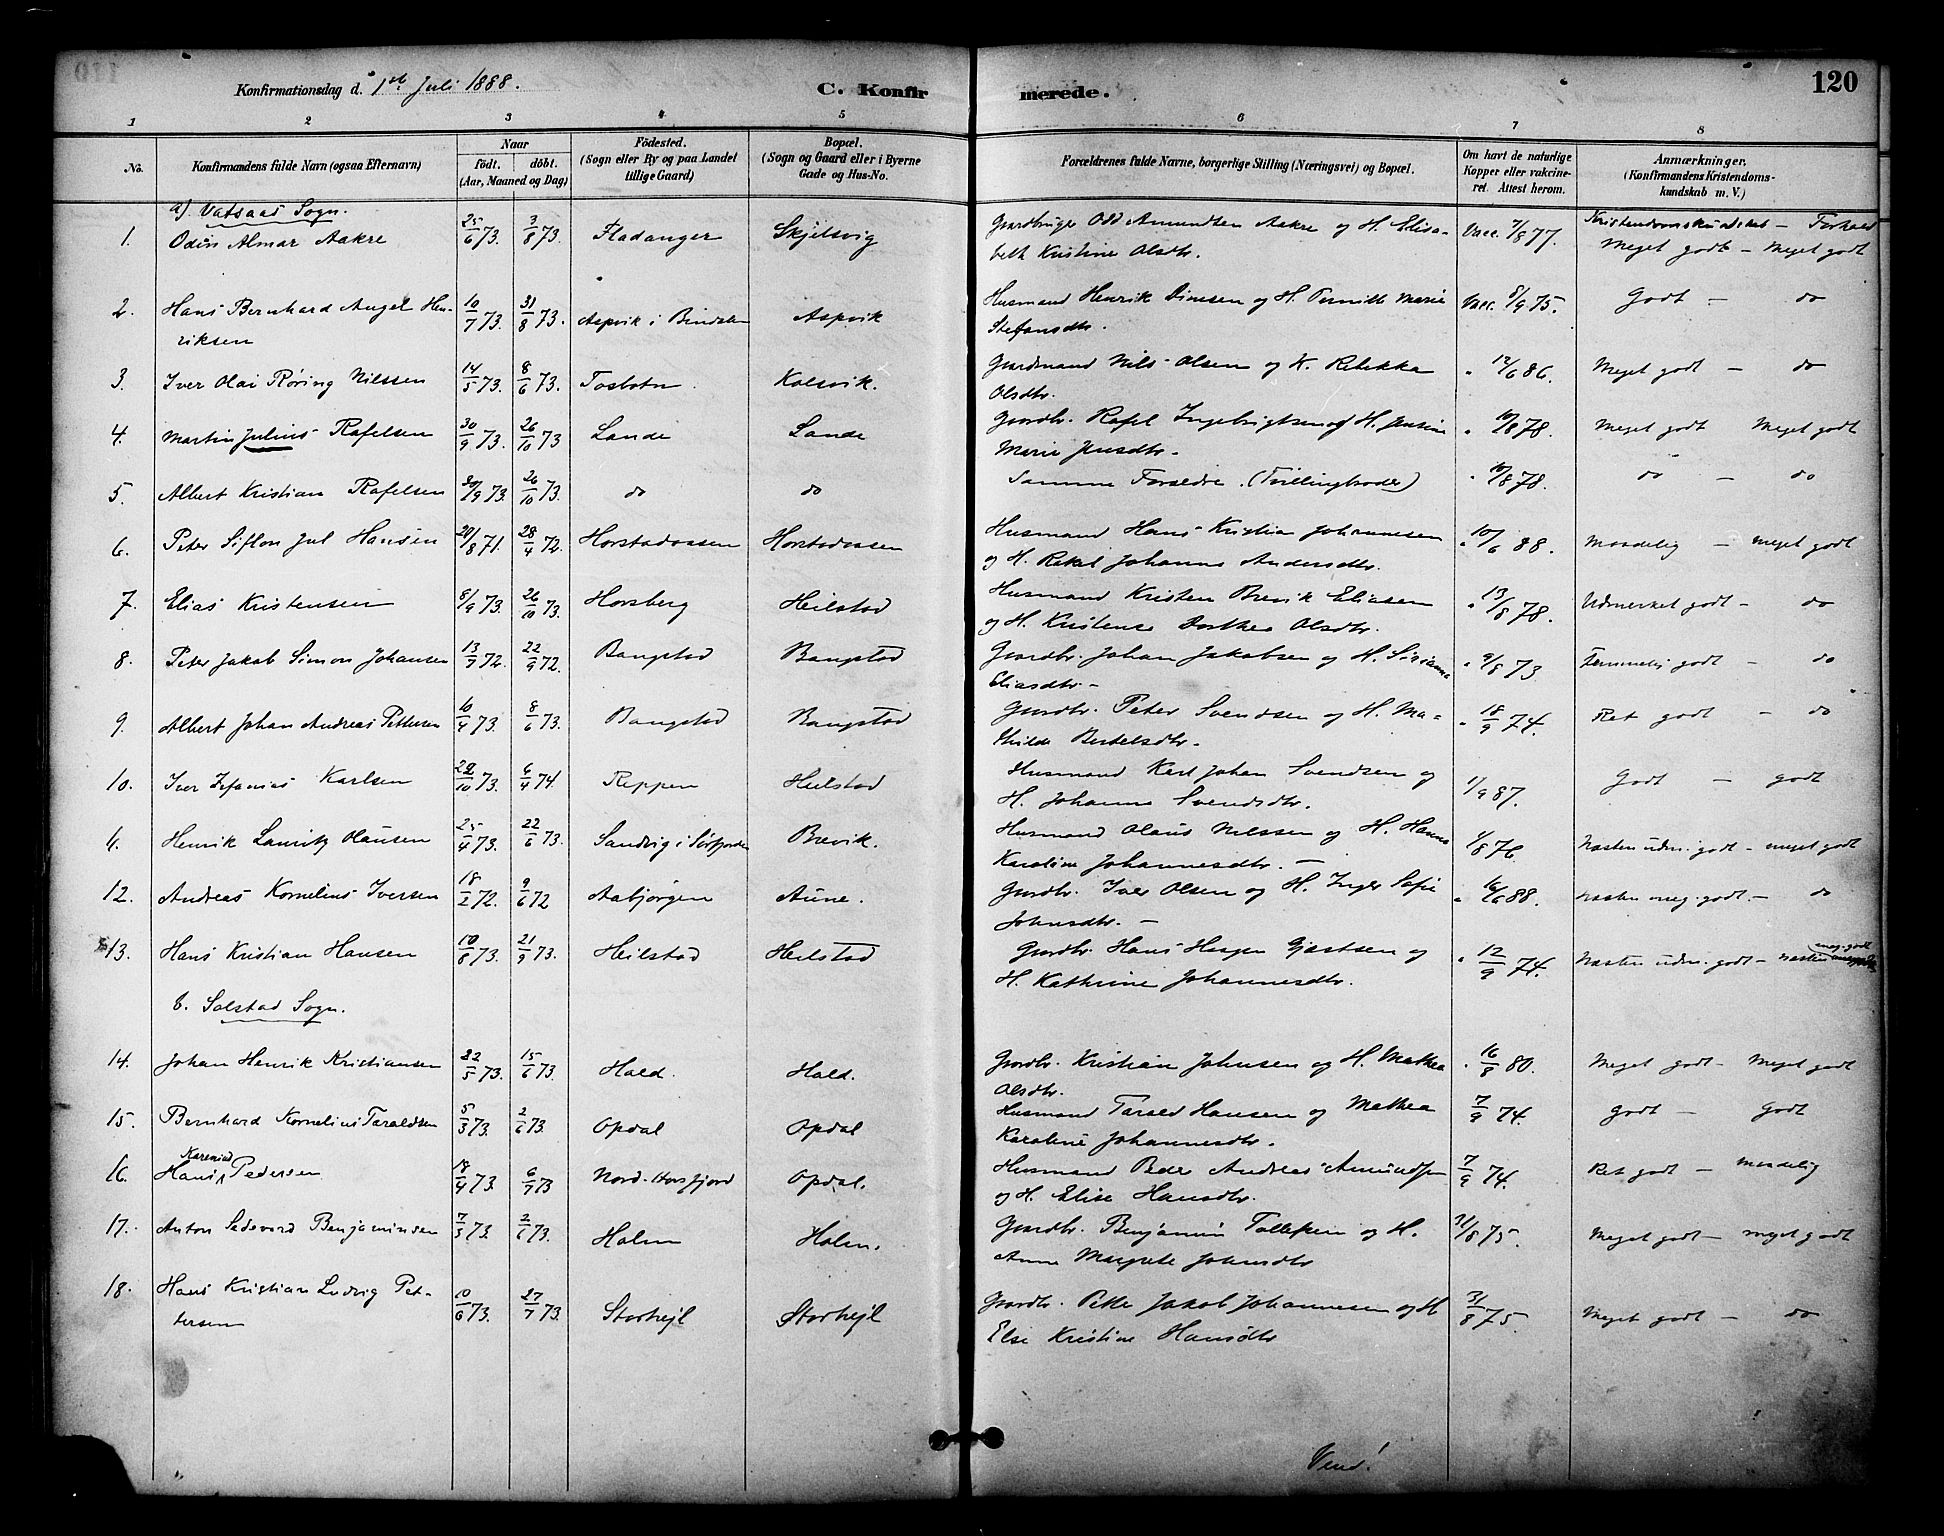 Konfirmationsdag d. 1ste Juli 1888. C. Konfir merede. 120
1 2 3 4 5 6 7 8
No. Konfirmandens fulde Navn (ogsaa Efternavn) Naar födt. döbt. (Aar, Maaned og Dag) Födested. (Sogn eller By og paa Landet tillige Gaard) Bopæl. (Sogn og Gaard eller i Byerne Gade og Hus-No. Forældrenes fulde Navne, borgerlige Stilling (Næringsvei) og Bopæl. Om havt de naturlige Kopper eller vakcineret. Attest herom. Anmærkninger. (Konfirmandens Kristendomskundskab m. V.)
a) Vatsaas Sogn. Kristendomskundskab — Forhold
1. Odin Almar Aakre 25/6 73. 3/8 73. Fladanger Skjelsvig Gaardbruger Odd Amundsen Aakre og H. Elisabeth Kristine Olsdtr. Vacc. 7/8 77. Meget godt — Meget godt
2. Hans Bernhard Angel Henriksen 10/7 73. 31/8 73. Aspvik i Bindalen Aspvik Husmand Henrik Dinesen og H. Pernille Marie Stefansdtr. Vacc. 8/9 75. Godt — do
3. Iver Olai Røring Nilssen 14/5 73. 8/6 73. Tosbotn Kolsvik. Gaardmand Nils Olsen og K. Rebekka Olsdtr. " 12/6 86. Meget godt — do
4. Martin Julius Rafelsen 30/9 73. 26/10 73 Lande Lande Gaardbr. Rafel Ingebrigtsen og H. Jensine Marie Jensdtr. " 10/8 78. Meget godt Meget godt
5. Albert Kristian Rafelsen 30/9 73. 26/10 73. do do Samme Forældre. (Tvillingbroder) " 10/8 78. do — do
6. Peter Sifton Jul Hansen 20/8 71. 28/4 72. Horstadaasen Horstadaasen Husmand Hans Kristian Johannesen og H. Rakel Johanna Andersdtr. " 10/6 88. Maadelig — meget godt
7. Elias Kristensen 8/9 73. 26/10 73. Horsberg Heilstad Husmand Kristen Brevik Eliasen og H. Kristense Dorthea Olsdtr. " 13/8 78. Udmerket godt — do
8. Peter Jakob Simon Johansen 13/7 72. 22/9 72. Bangstad Bangstad Gaardbr. Johan Jakobsen og H. Sirianna Eliasdtr. — " 9/8 73 Temmelig godt — do
9. Albert Johan Andreas Pettersen 10/4 73. 8/6 73. Bangstad Bangstad Gaardbr. Peter Svendsen og H. Mathilde Bertelsdtr. — " 18/9 74. Ret godt — do
10. Iver Zefanias Karlsen 29/10 73. 6/4 74. Reppen Heilstad Husmand Karl Johan Svendsen og H. Johanna Svendsdtr. 1/9 87. Godt — godt
11. Henrik Lauritz Olausen 25/4 73. 22/6 73. Sandvig i Sørfjorden Brevik. Husmand Olaus Nilssen og H. Hanna Karoline Johannesdtr. — 1/8 76 Næsten udm. godt — meget godt
12. Andreas Kornelius Iversen 18/2 72. 9/6 72 Aabjørgen Aune. Gaardbr. Iver Olsen og H. Inger Sofie Johnsdtr. — " 16/6 88. næsten meg. godt. — do
13. Hans Kristian Hansen 10/8 73. 21/9 73. Heilstad Heilstad Gaardbr. Hans Hagen Gjæstsen og H. Kathrine Johannesdtr. " 12/9 74. Næsten udm. godt — næsten meg. godt
b. Solstad Sogn.
14. Johan Henrik Kristiansen 22/5 73. 15/6 73. Hald. Hald. Gaardbr. Kristian Johnsen og H. Mathea Olsdtr. " 16/8 80. Meget godt — Meget godt
15. Bernhard Kornelius Taraldsen 5/3 73. 2/6 73. Opdal Opdal Husmand Tarald Hansen og Mathea Karoline Johannesdtr. 7/9 74. godt — Godt
16. Hans Pedersen 18/4 73. 6/7 73 Nord-Horsfjord Opdal. Husmand Peder Andreas Amundsen og H. Elise Hansdtr. 7/9 74. Ret godt — maadelig
17. Anton Sedevard Benjaminsen 7/3 73. 2/6 73. Holm Holm. Gaardbr. Benjamin Tollefsen og H. Anne Margrete Johnsdtr 31/8 75. Meget godt — meget godt
18. Hans Kristian Ludvig Pettersen 10/6 73. 27/7 73. Storhejl Storhejl Gaardbr. Petter Jakob Johannesen og H Else Kristine Hansdtr 31/8 75. Meget godt — do
Vend!